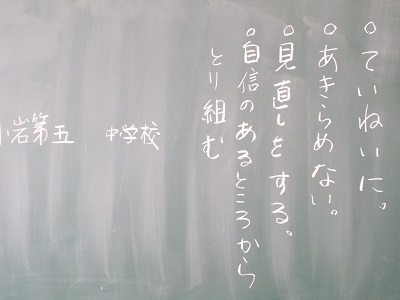 ○ていねいに。
○あきらめない。
○見直しをする。
○自信のあるところから
とり組む
小岩第五 中学校